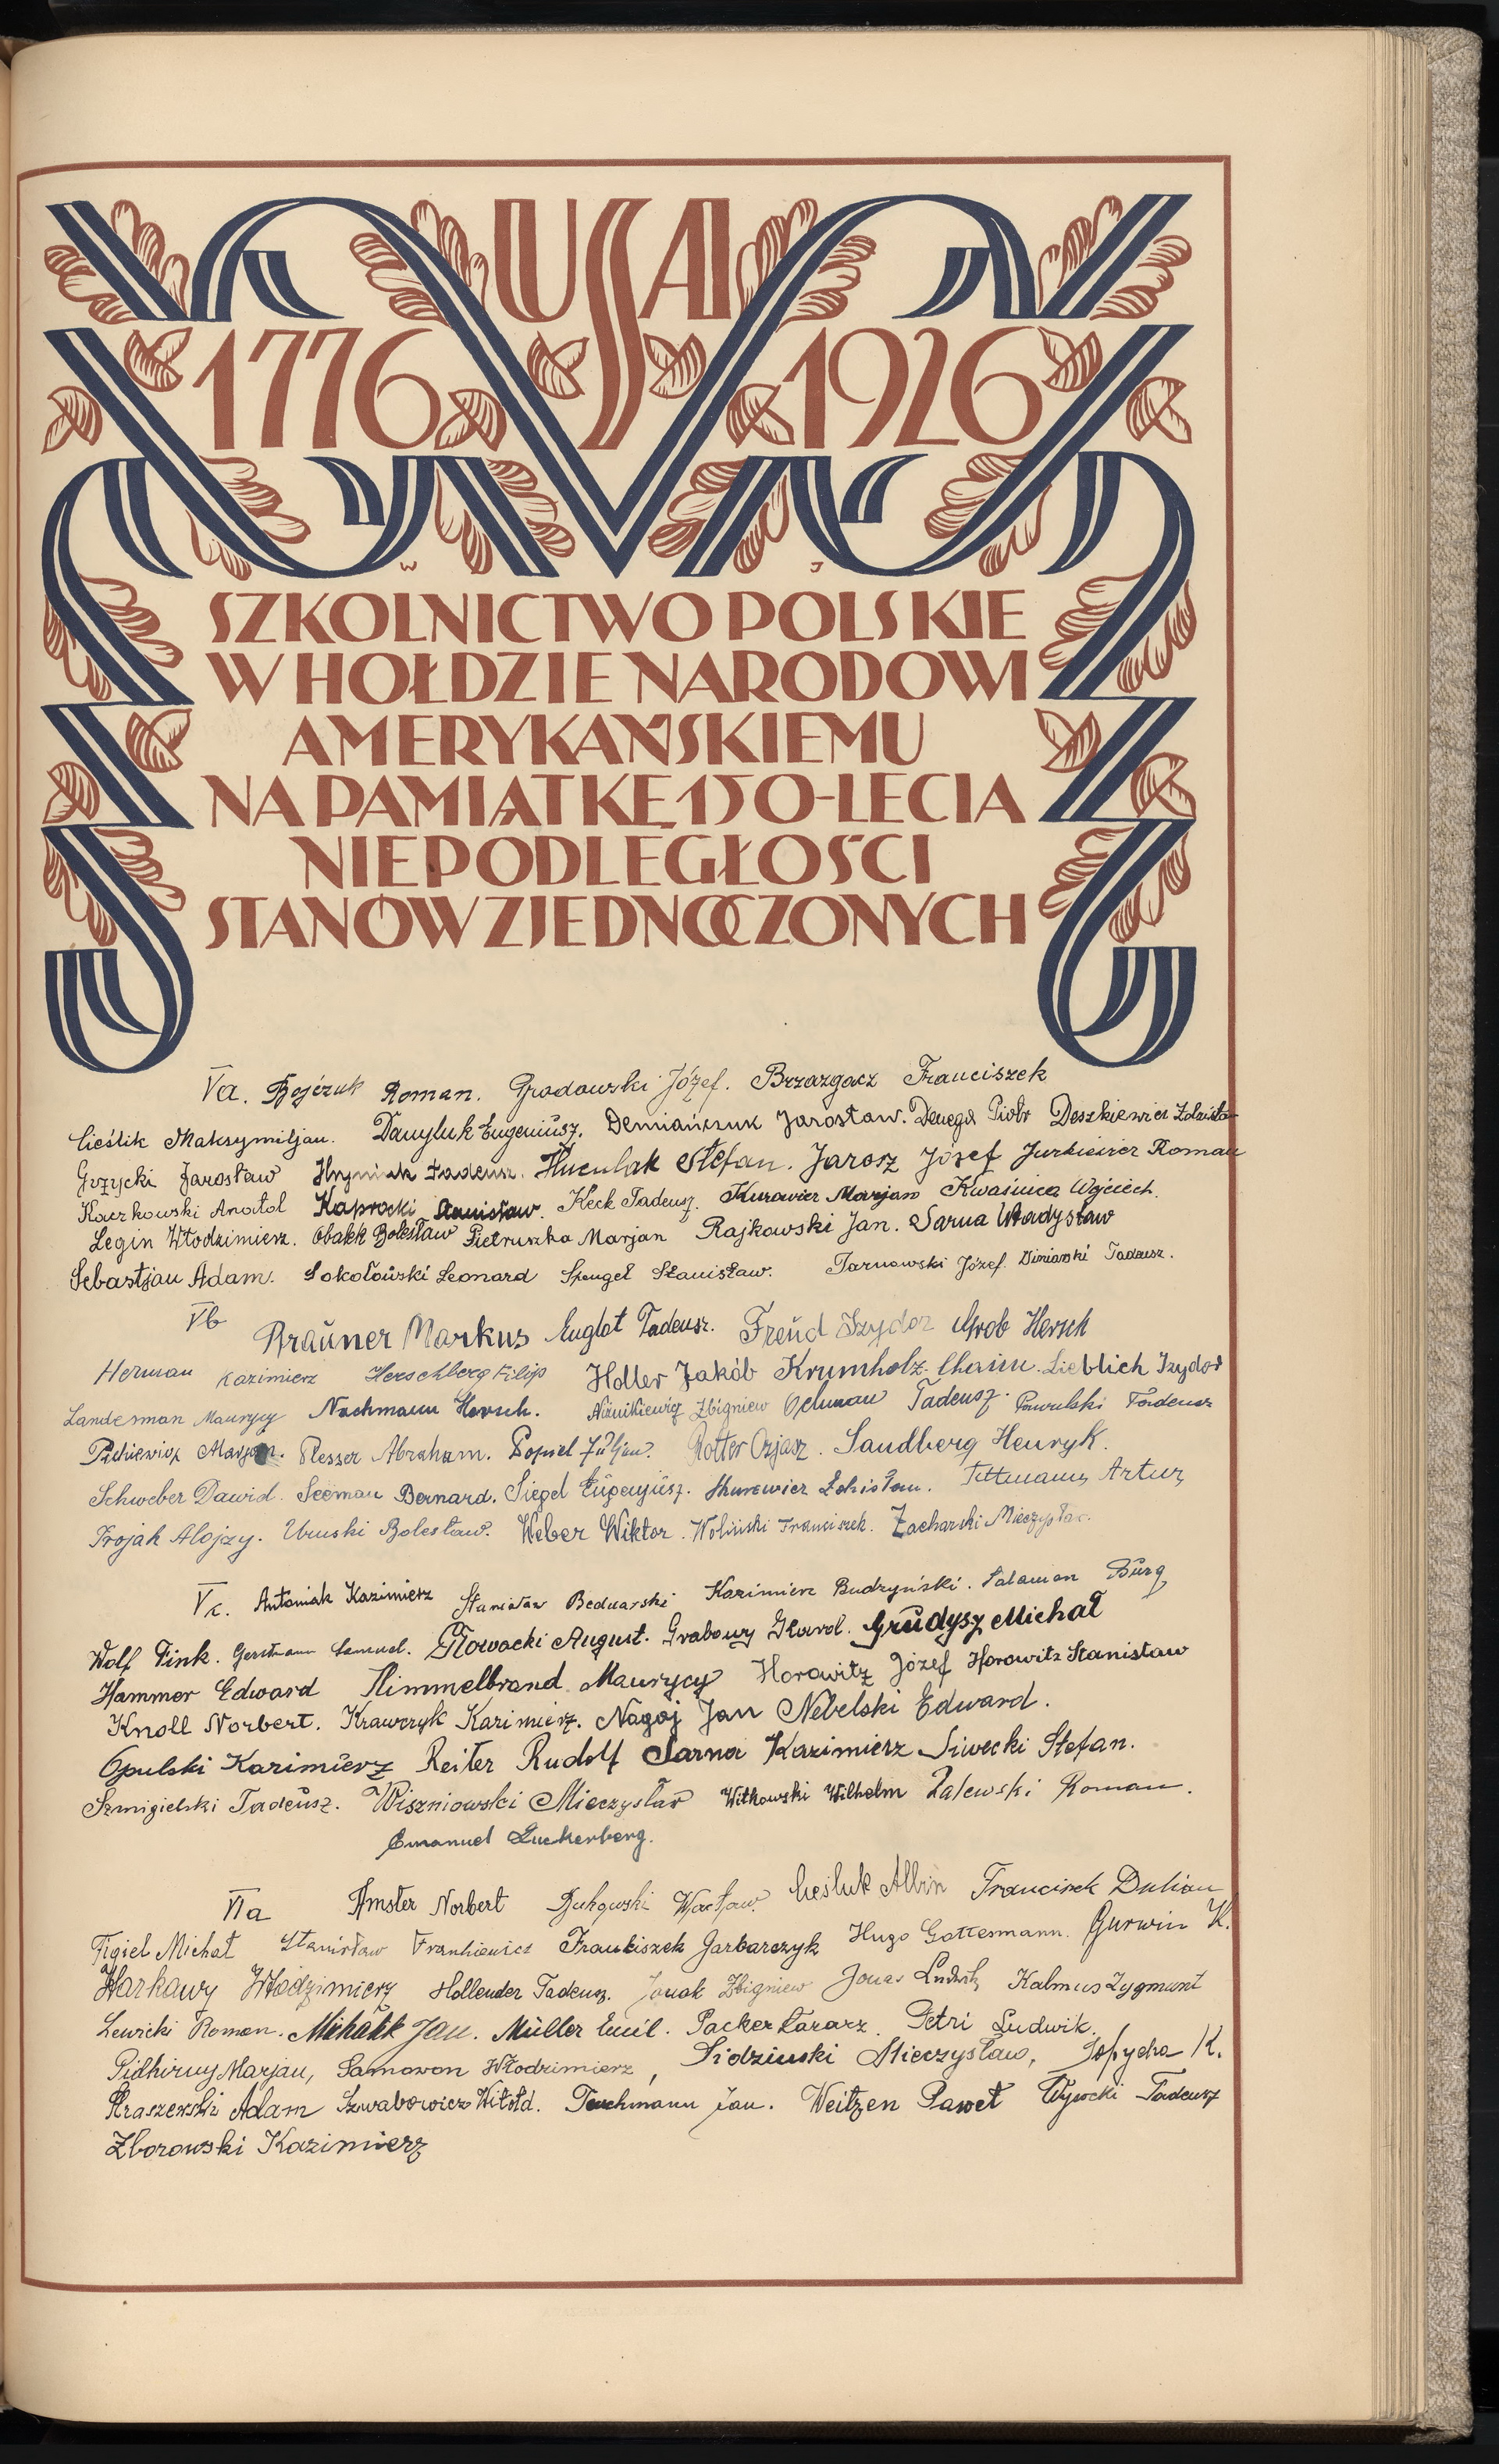 USA
1776 1926
W J
SZKOLNICTWO POLSKIE
W HOŁDZIE NARODOWI
AMERYKAŃSKIEMU
NA PAMIĄTKĘ 150-LECIA
NIEPODLEGŁOŚCI
STANÓW ZJEDNOCZONYCH
Va. Bojczuk Roman. Grodowski Józef. Brzazgacz Franciszek
Cieślik Maksymiljan. Danyluk Eugenjusz. Demiańczuk Jarosław. Denega Piotr Deszkiewicz Zdzisław
Grzycki Jarosław Hryniak Tadeusz. Huculak Stefan. Jarosz Józef Jurkiewicz Roman
Kaczkowski Anatol Kaprocki Stanisław. Keck Tadeusz. Kurowicz Marjan Kwaśnica Wojciech.
Legin Włodzimierz. Obakk Bolesław Pietruszka Marjan Rajkowski Jan. Sarna Władysław
Sebastjan Adam. Sokołowski Leonard Spengel Stanisław. Tarnowski Józef. Tadeusz.
Vb Brauner Markus Englot Tadeusz. Freud Izydor Grob Hersch
Herman Kazimierz Herschberg Filip Holler Jakób Krumholz Chaim. Lieblich Izydor
Landesman Maurycy Nachmann Hersch. Zbigniew Ochman Tadeusz. Pawulski Tadeusz
Marjan. Plesser Abraham. Popiel Juljan. Rotter Ozjasz. Sandberg Henryk.
Schweber Dawid. Seeman Bernard. Siegel Eugenjusz. Skurowicz Zdzisław. Tittmann Artur
Trojak Alojzy. Uruski Bolesław. Weber Wiktor. Woliński Franciszek. Zacharski Mieczysław.
Vc. Antoniak Kazimierz Stanisław Bednarski Kazimierz Budzyński. Salamon Burg
Wolf Fink. Gerstmann Samuel. Głowacki August. Grabowy Karol. Grudysz Michał
Hammer Edward Himmelbrand Maurycy Horowitz Józef Horowitz Stanisław
Knoll Norbert. Krawczyk Kazimierz. Nagaj Jan Nebelski Edward.
Opulski Kazimierz Reiter Rudolf Sarna Kazimierz Siwecki Stefan.
Szmigielski Tadeusz. Wiszniowski Mieczysław Witkowski Wilhelm Zalewski Roman.
Emanuel Zuckerberg.
VIa Amster Norbert Bukowski Wacław. Cieśluk Albin Franciszek Dulian
Figiel Michał Stanisław Frankiewicz Franciszek Garbarczyk Hugo Gottesmann. Gurwin K.
Harkawy Włodzimierz Hollender Tadeusz. Jonak Zbigniew Jonas Ludwik Kalmus Zygmunt
Lewicki Roman. Michalik Jan. Müller Emil. Packer Łazarz. Petri Ludwik.
Pidhirny Marjan, Samowon Włodzimierz, Sidziński Mieczysław, Sopycha K.
Kraszewski Adam Szwabowicz Witołd. Tuchmann Jan. Weitzen Paweł Wysocki Tadeusz
Zborowski Kazimierz